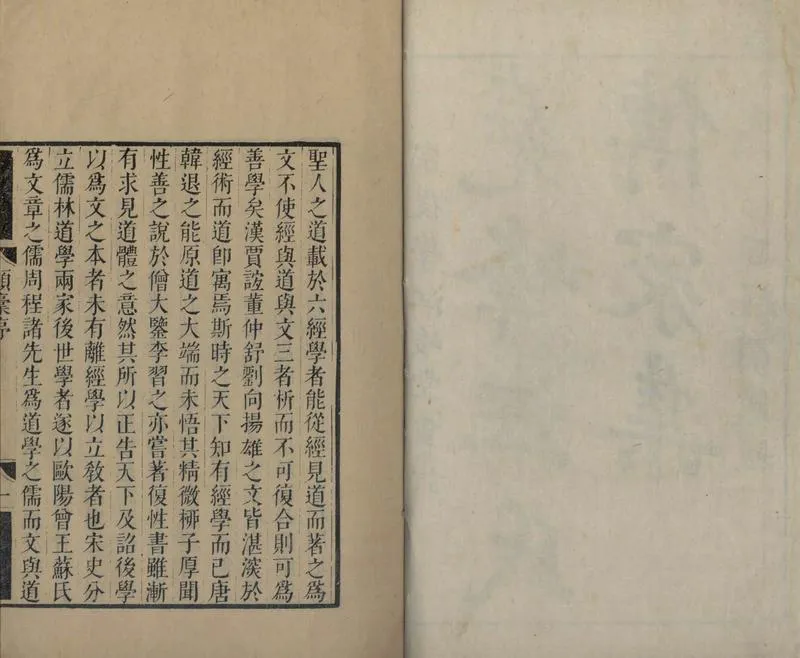 聖人之道載於六經學者能從經見道而著之爲
文不使經與道與文三者析而不可復合則可爲
善學矣漢賈誼董仲舒劉向揚雄之文皆湛深於
經術而道卽寓焉斯時之天下知有經學而已唐
韓退之能原道之大端而未悟其精微桺子厚聞
性善之說於僧大鑒李習之亦嘗著復性書雖漸
有求見道體之意然其所以正告天下及詔後學
以爲文之本者未有離經學以立敎者也宋史分
立儒林道學兩家後世學者遂以歐陽曾王蘇氏
爲文章之儒周程諸先生爲道學之儒而文與道
顧序
一